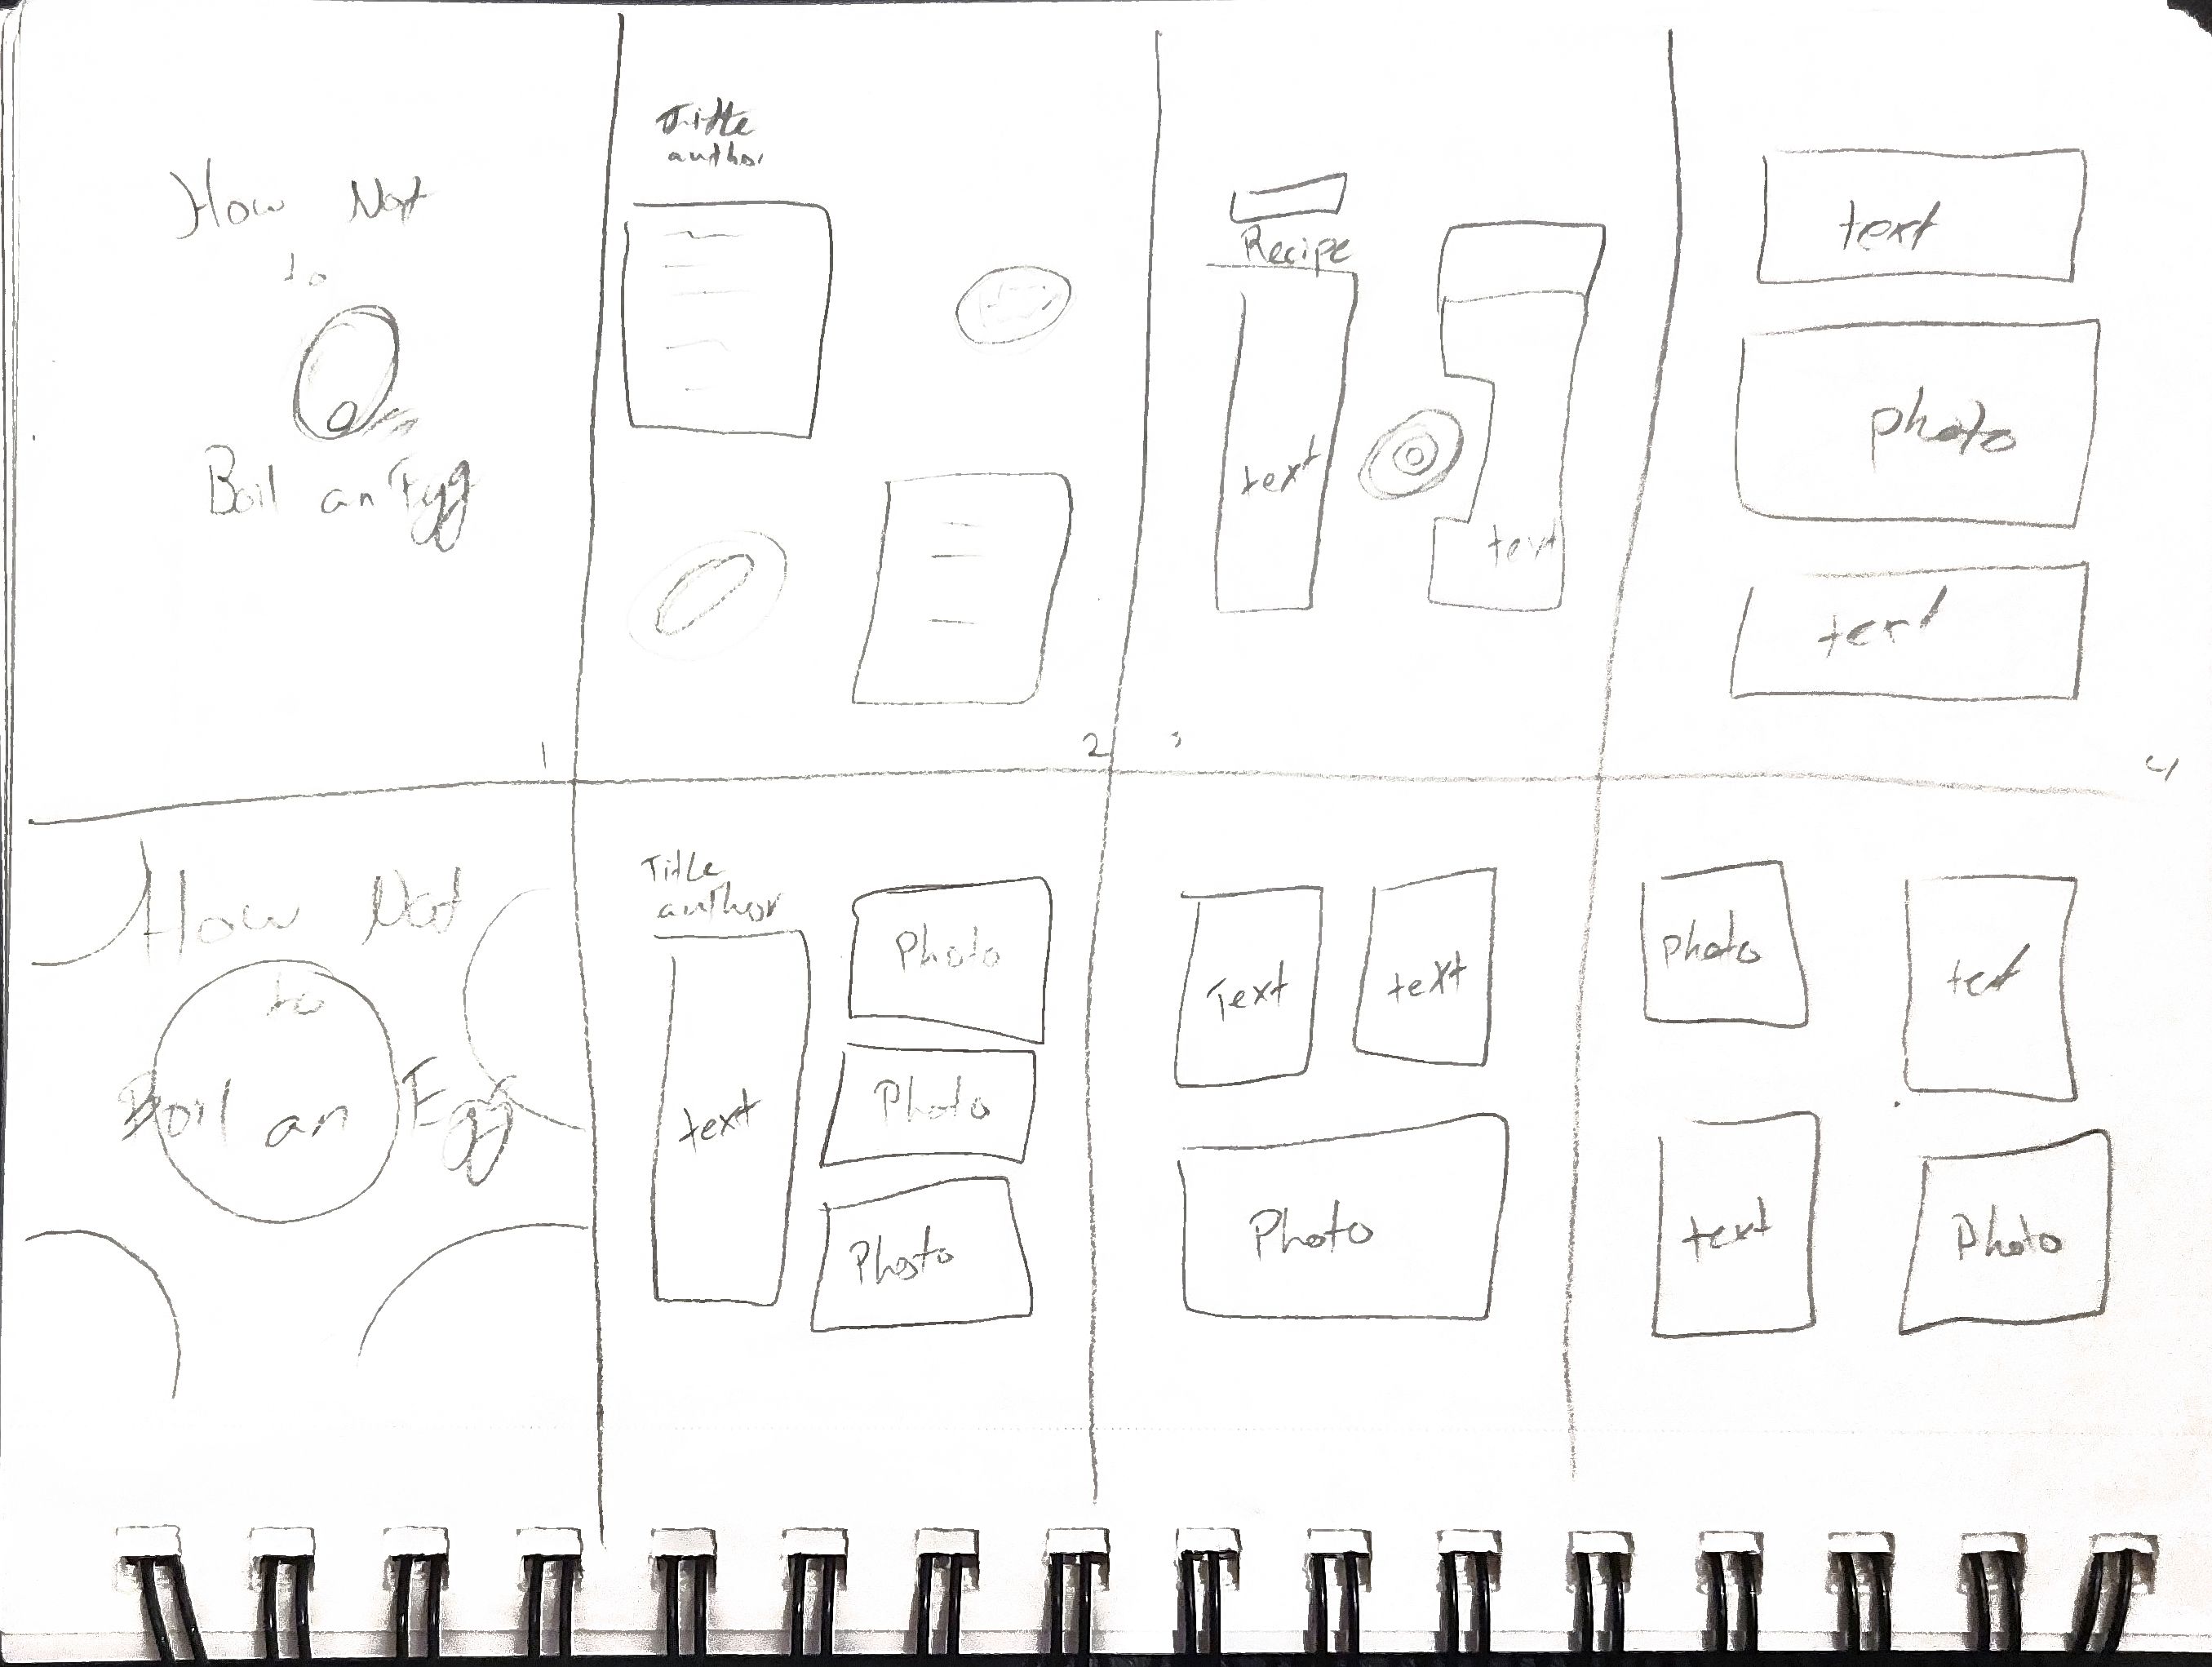 How Not
to
Boil an Egg
1
Title
author
2
Recipe
text
text
3
text
photo
text
4
How Not
to
Boil an Egg
Title
author
text
Photo
Photo
Photo
Text
text
Photo
photo
text
text
Photo